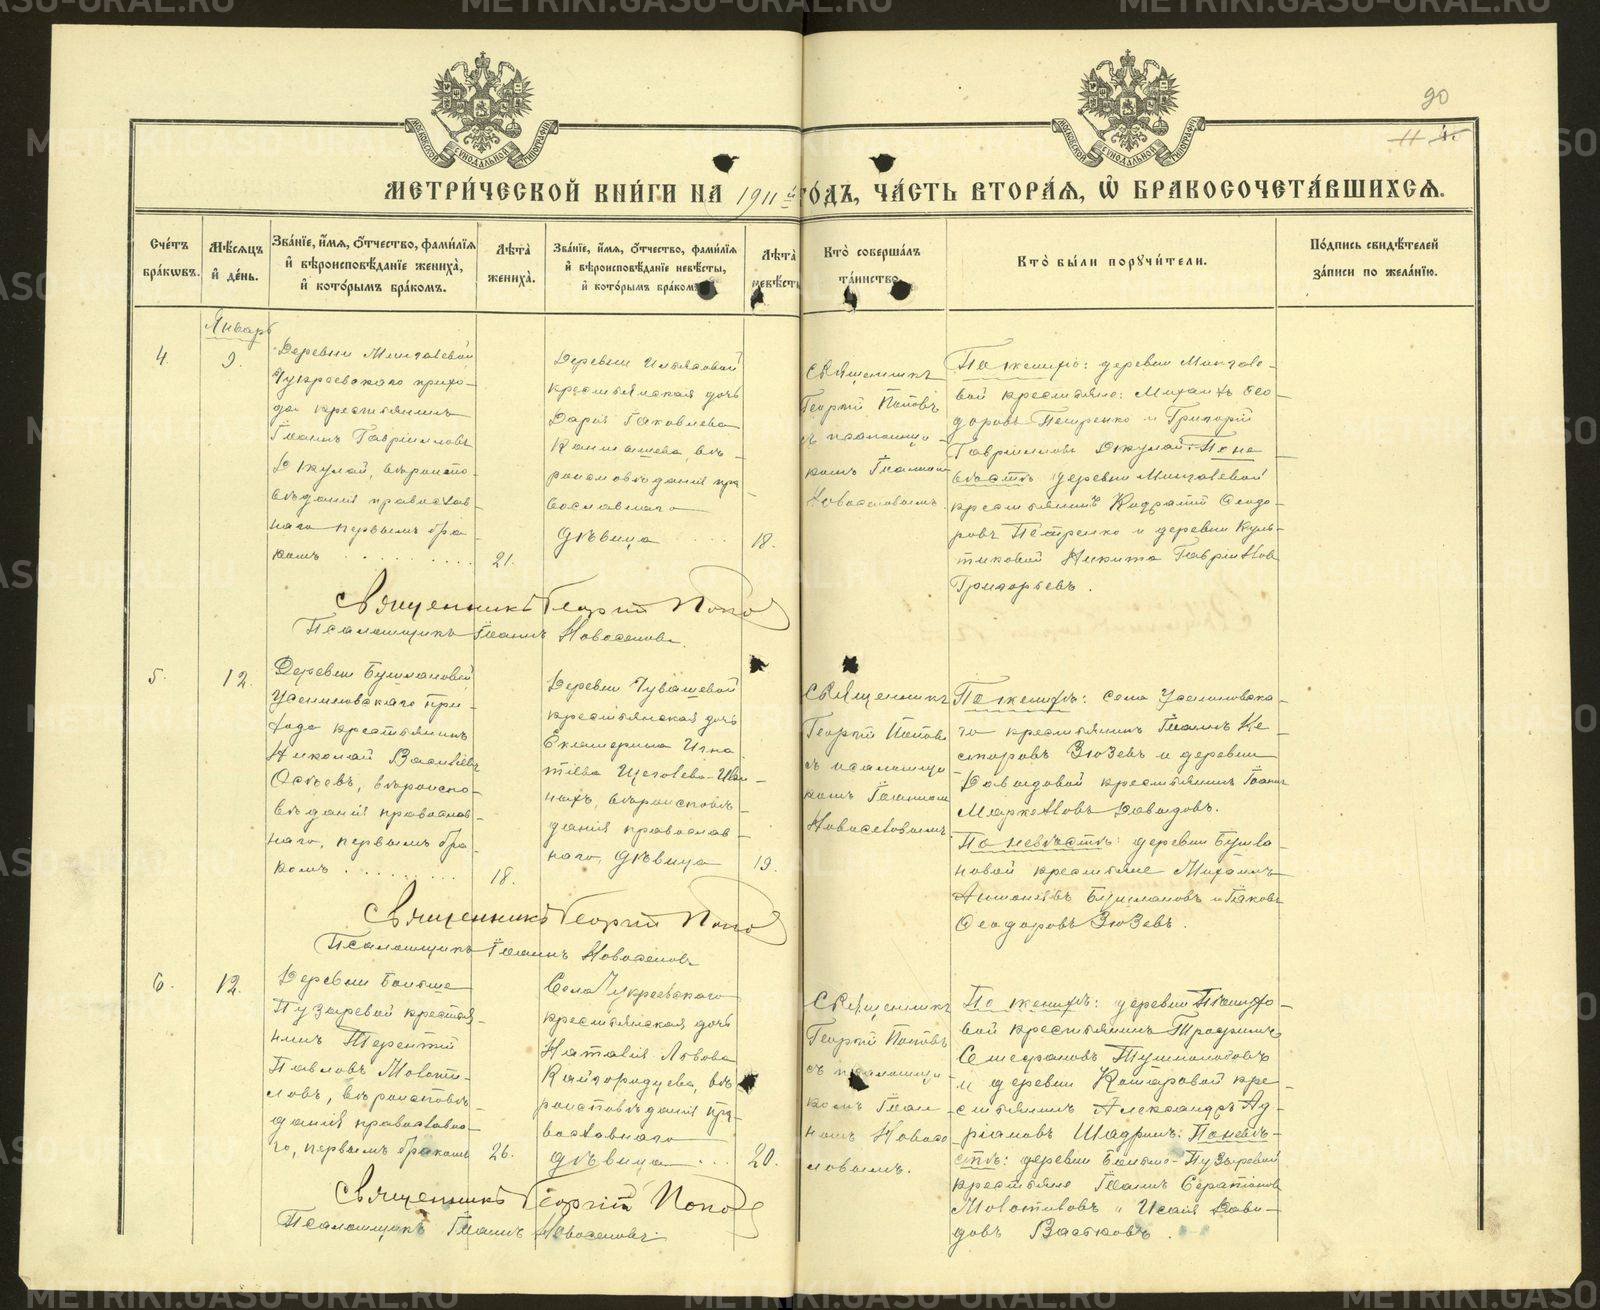 90
МЕТРИ́ЧЕСКОЙ КНИ́ГИ НА 1911й ГО́ДЪ, ЧА́СТЬ ВТОРА́Я, Ѡ҆ БРАКОСОЧЕТА́ВШИХСЯ.
Сче́тъ бра́кѡвъ.
Мѣ́сяцъ и҆ де́нь.
Зва́нїе, и҆́мя, ѻ҆́тчество, фами́лїя и҆ вѣроисповѣ́данїе жениха̀, и҆ кото́рымъ бра́комъ.
Лѣ́та̀ жениха̀.
Зва́нїе, и҆́мя, ѻ҆́тчество, фами́лїя и҆ вѣроисповѣ́данїе невѣ́сты, и҆ кото́рымъ бра́комъ
Лѣ́та̀ невѣ́сты
Кто̀ соверша́лъ та́инство.
Кто̀ бы́ли порꙋчи́тели.
По́дпись свидѣ́телей за́писи по жела́нїю.
Январь
4.
9.
Деревни
Чукреевскаго прихо-
да крестьянинъ
Іоаннъ Гавріиловъ
Окулай, вѣроиспо-
вѣданія православ-
наго первымъ бра-
комъ
21.
Деревни
крестьянская дочь
Дарія Іаковлева
вѣ-
роисповѣданія пра-
вославнаго
дѣвица
18.
Священникъ
Георгій Поповъ
съ псаломщи-
комъ Іоанномъ
Новоселовымъ.
По женихѣ: деревни
вой крестьяне: Михаилъ Ѳео-
доровъ Петренко и Григорій
Гавріиловъ Окулай. По не-
вѣстѣ: деревни
крестьянинъ Ѳеодо-
ровъ Петренко и деревни
Никита Гавріиловъ
Григорьевъ.
Священникъ Георгій Поповъ
Псаломщикъ Іоаннъ Новоселовъ.
5.
12.
Деревни Бушмановой
при-
хода крестьянинъ
Николай Васильевъ
вѣроиспо-
вѣданія православ-
наго, первымъ бра-
комъ
18.
Деревни Чувашевой
крестьянская дочь
Екатерина Игна-
тіева
вѣроисповѣ-
данія православ-
наго, дѣвица
19.
Священникъ
Георгій Поповъ
съ псаломщи-
комъ Іоанномъ
Новоселовымъ
По женихѣ: села
го крестьянинъ Іоаннъ Не-
сторовъ Зюзевъ и деревни
Давыдовой крестьянинъ Іоаннъ
Маркеловъ Давыдовъ.
По невѣстѣ: деревни Бушма-
новой крестьяне Михаилъ
Бушмановъ и Іаковъ
Ѳеодоровъ Зюзевъ.
Священникъ Георгій Поповъ
Псаломщикъ Іоаннъ Новоселовъ
6.
12.
Деревни Больше-
Пузыревой крестья-
нинъ Терентій
Павловъ Молоти-
ловъ, вѣроисповѣ-
данія православна-
го, первымъ бракомъ
26.
Села Чукреевскаго
крестьянская дочь
Наталія Львова
Кайгородцева, вѣ-
роисповѣданія пра-
вославнаго
дѣвица
20.
Священникъ
Георгій Поповъ
съ псаломщи-
комъ Іоан-
номъ Новосе-
ловымъ.
По женихѣ: деревни
вой крестьянинъ Трофимъ
Стефановъ
и деревни кре-
стьянинъ Александръ Ад-
ріановъ Шадринъ: По невѣ-
стѣ: деревни Больше-Пузыревой
крестьяне Іоаннъ Серапіоновъ
Молотиловъ и Исаія Дави-
довъ
Священникъ Георгій Поповъ
Псаломщикъ Іоаннъ Новоселовъ.
METRIKI.GASO-URAL.RU